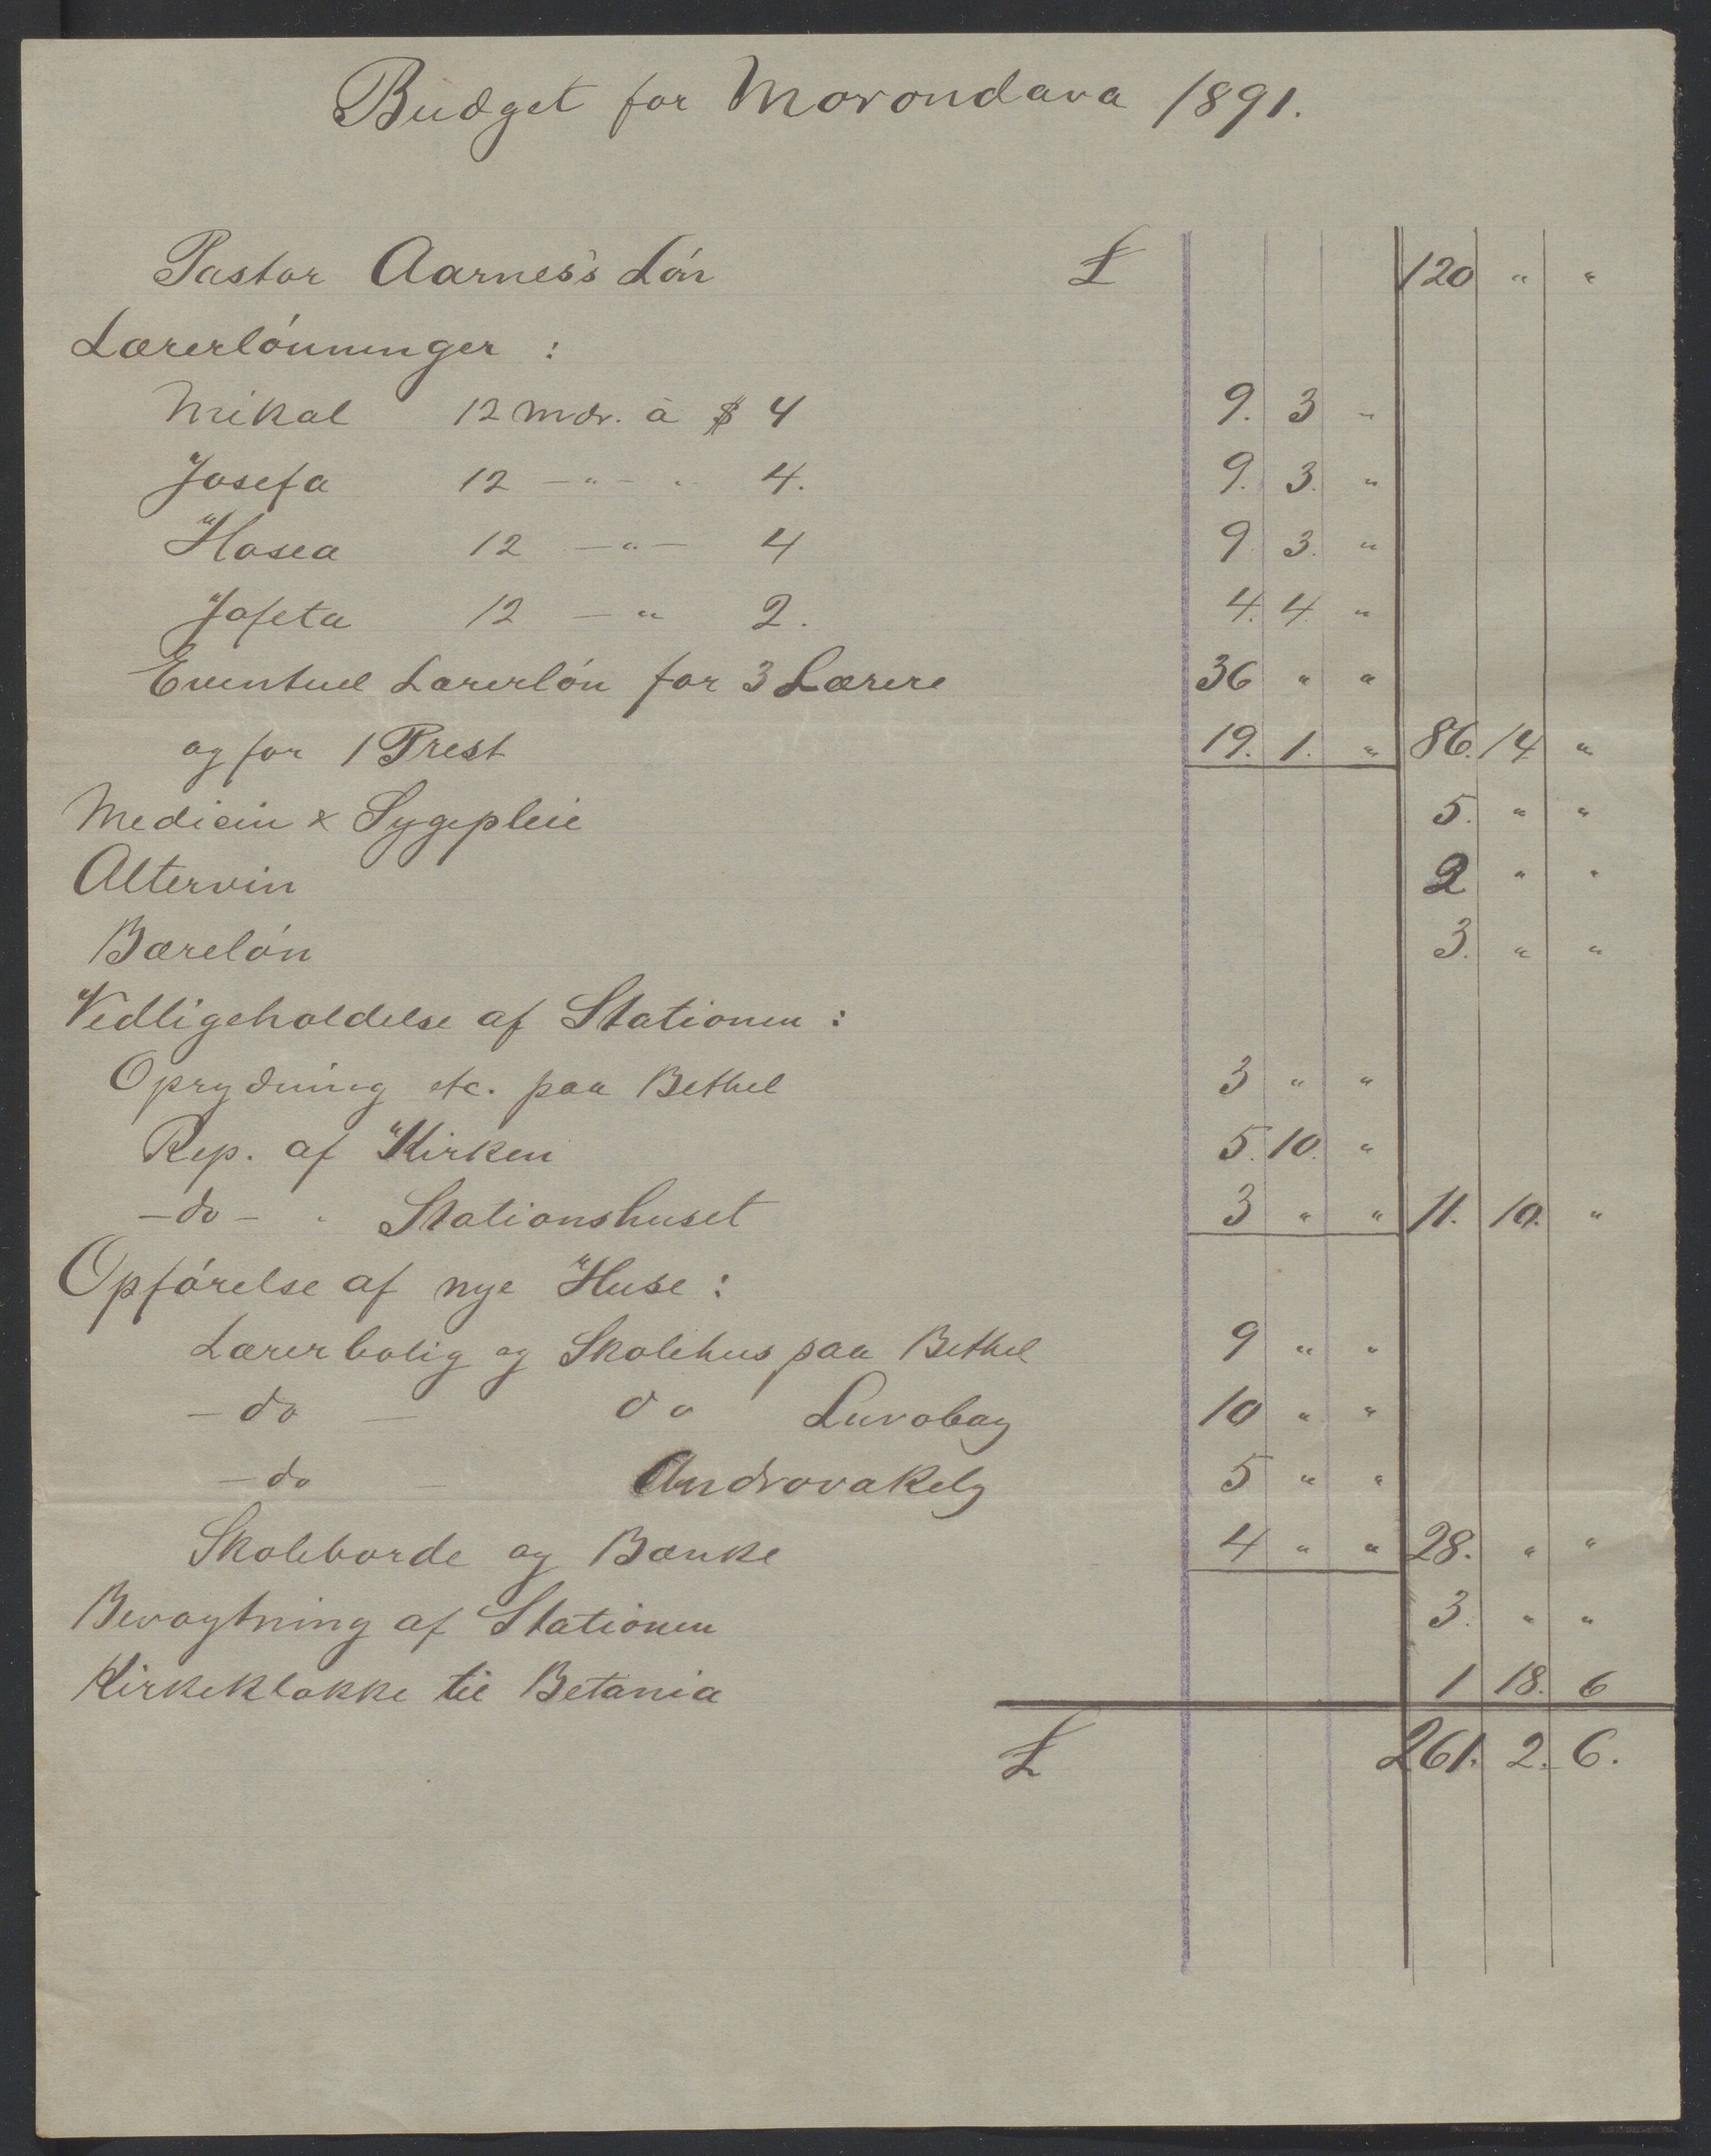 Budget for Morondava 1891.
Pastor Aarnes's Lón £ 120 " "
Lærerlónninger :
Mikal 12 Mdr. à $ 4 9. 3 "
Josefa 12 —"— " 4. 9. 3. "
Hosea 12 —"— 4 9. 3. "
Jafeta 12 — " 2. 4. 4. "
Eventuel Lærerlón for 3 Lærere 36 " "
og for 1 Prest 19. 1. " 86. 14 "
Medicin & Sygepleie 5. " "
Altervin 2 " "
Bærelón 3. " "
Vedligeholdelse af Stationen :
Oprydning etc. paa Bethel 3 " "
Rep. af Kirken 5. 10. "
—do— " Stationshuset 3 " " 11. 10. "
Opfórelse af nye Huse :
Lærerbolig og Skolehus paa Bethel 9 " "
— do — do Luvobay 10 " "
— do — Androvakely 5 " "
Skoleborde og Bænke 4 " " 28. " "
Bevogtning af Stationen 3. " "
Kirkeklokke til Betania 1 18. 6
£ 261. 2. 6.